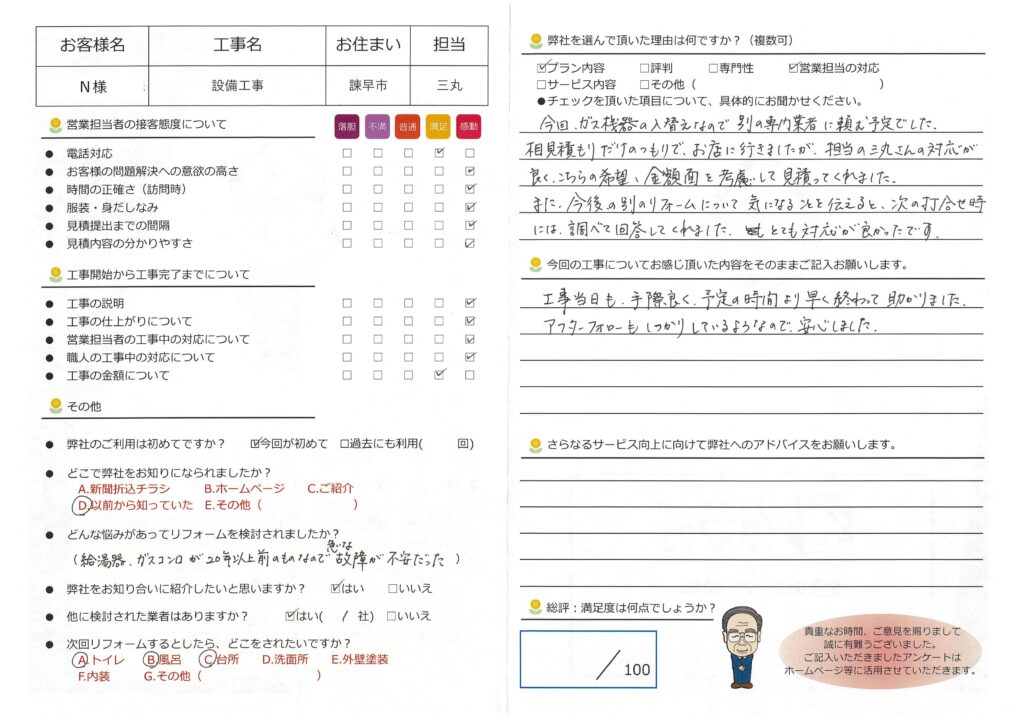 お客様名 工事名 お住まい 担当
N様 設備工事 諫早市 三丸
営業担当者の接客態度について 落胆 不満 普通 満足 感動
● 電話対応 □ □ □ ☑ □
● お客様の問題解決への意欲の高さ □ □ □ □ ☑
● 時間の正確さ（訪問時） □ □ □ □ ☑
● 服装・身だしなみ □ □ □ □ ☑
● 見積提出までの間隔 □ □ □ □ ☑
● 見積内容の分かりやすさ □ □ □ □ ☑
工事開始から工事完了までについて
● 工事の説明 □ □ □ □ ☑
● 工事の仕上がりについて □ □ □ □ ☑
● 営業担当者の工事中の対応について □ □ □ □ ☑
● 職人の工事中の対応について □ □ □ □ ☑
● 工事の金額について □ □ □ ☑ □
その他
● 弊社のご利用は初めてですか？ ☑今回が初めて □過去にも利用( 回)
● どこで弊社をお知りになられましたか？
A.新聞折込チラシ B.ホームページ C.ご紹介
D.以前から知っていた E.その他（ ）
● どんな悩みがあってリフォームを検討されましたか？
（給湯器、ガスコンロが20年以上前のものなので急な故障が不安だった）
● 弊社をお知り合いに紹介したいと思いますか？ ☑はい □いいえ
● 他に検討された業者はありますか？ ☑はい( / 社) □いいえ
● 次回リフォームするとしたら、どこをされたいですか？
A トイレ B 風呂 C 台所 D.洗面所 E.外壁塗装
F.内装 G.その他（ ）
弊社を選んで頂いた理由は何ですか？（複数可）
☑プラン内容 □評判 □専門性 ☑営業担当の対応
□サービス内容 □その他（ ）
●チェックを頂いた項目について、具体的にお聞かせください。
今回、ガス機器の入替えなので別の専門業者に頼む予定でした。
相見積もりだけのつもりで、お店に行きましたが、担当の三丸さんの対応が
良く、こちらの希望、金額面を考慮して見積ってくれました。
また、今後の別のリフォームについて気になることを伝えると、次の打合せ時
には、調べて回答してくれました。とても対応が良かったです。
今回の工事についてお感じ頂いた内容をそのままご記入お願いします。
工事当日も、手際良く、予定の時間より早く終わって助かりました。
アフターフォローもしっかりしているようなので、安心しました。
さらなるサービス向上に向けて弊社へのアドバイスをお願いします。
総評：満足度は何点でしょうか？
/ 100
貴重なお時間、ご意見を賜りまして
誠に有難うございました。
ご記入いただきましたアンケートは
ホームページ等に活用させていただきます。